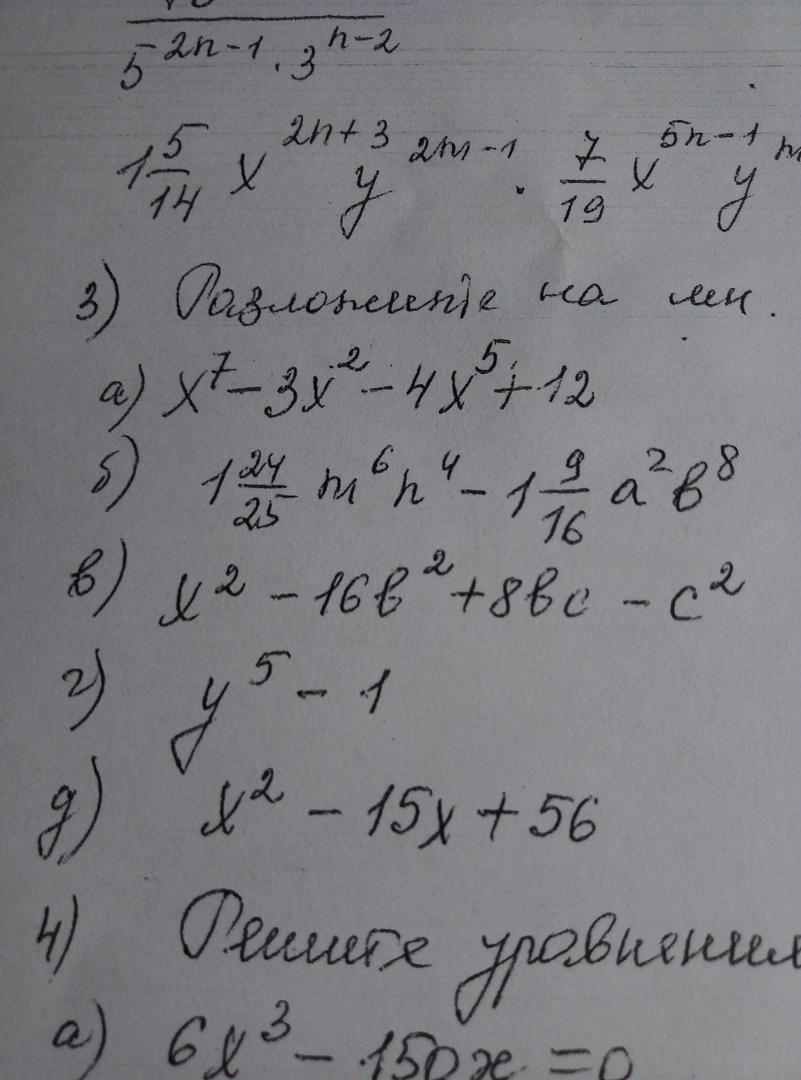 5^{2n-1} · 3^{n-2}
1 5/14 x^{2n+3} y^{2m-1} · 7/19 x^{5n-1} y^m
3) Разложите на мн.
а) x^7 - 3x^2 - 4x^5 + 12
б) 1 24/25 m^6 n^4 - 1 9/16 a^2 b^8
в) x^2 - 16b^2 + 8bc - c^2
г) y^5 - 1
д) x^2 - 15x + 56
4) Решите уравнения
а) 6x^3 - 150x = 0